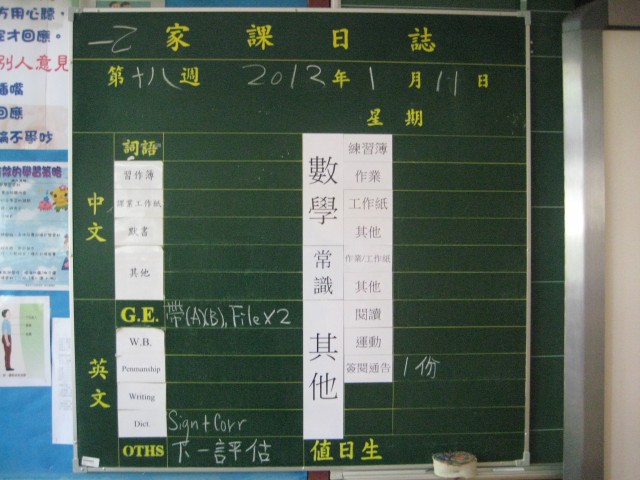 方用心聽，
完才回應。
別人意見
插嘴
回應
一乙 家課日誌
第十八週 2012年1月11日
星期
中文
詞語
習作簿
課業工作紙
默書
其他
英文
G.E. 帶(A)(B), File x 2
W.B.
Penmanship
Writing
Dict. Sign + Corr
OTHS 下一評估
數學
練習簿
作業
工作紙
其他
常識
作業/工作紙
其他
其他
閱讀
運動
簽閱通告 1份
值日生